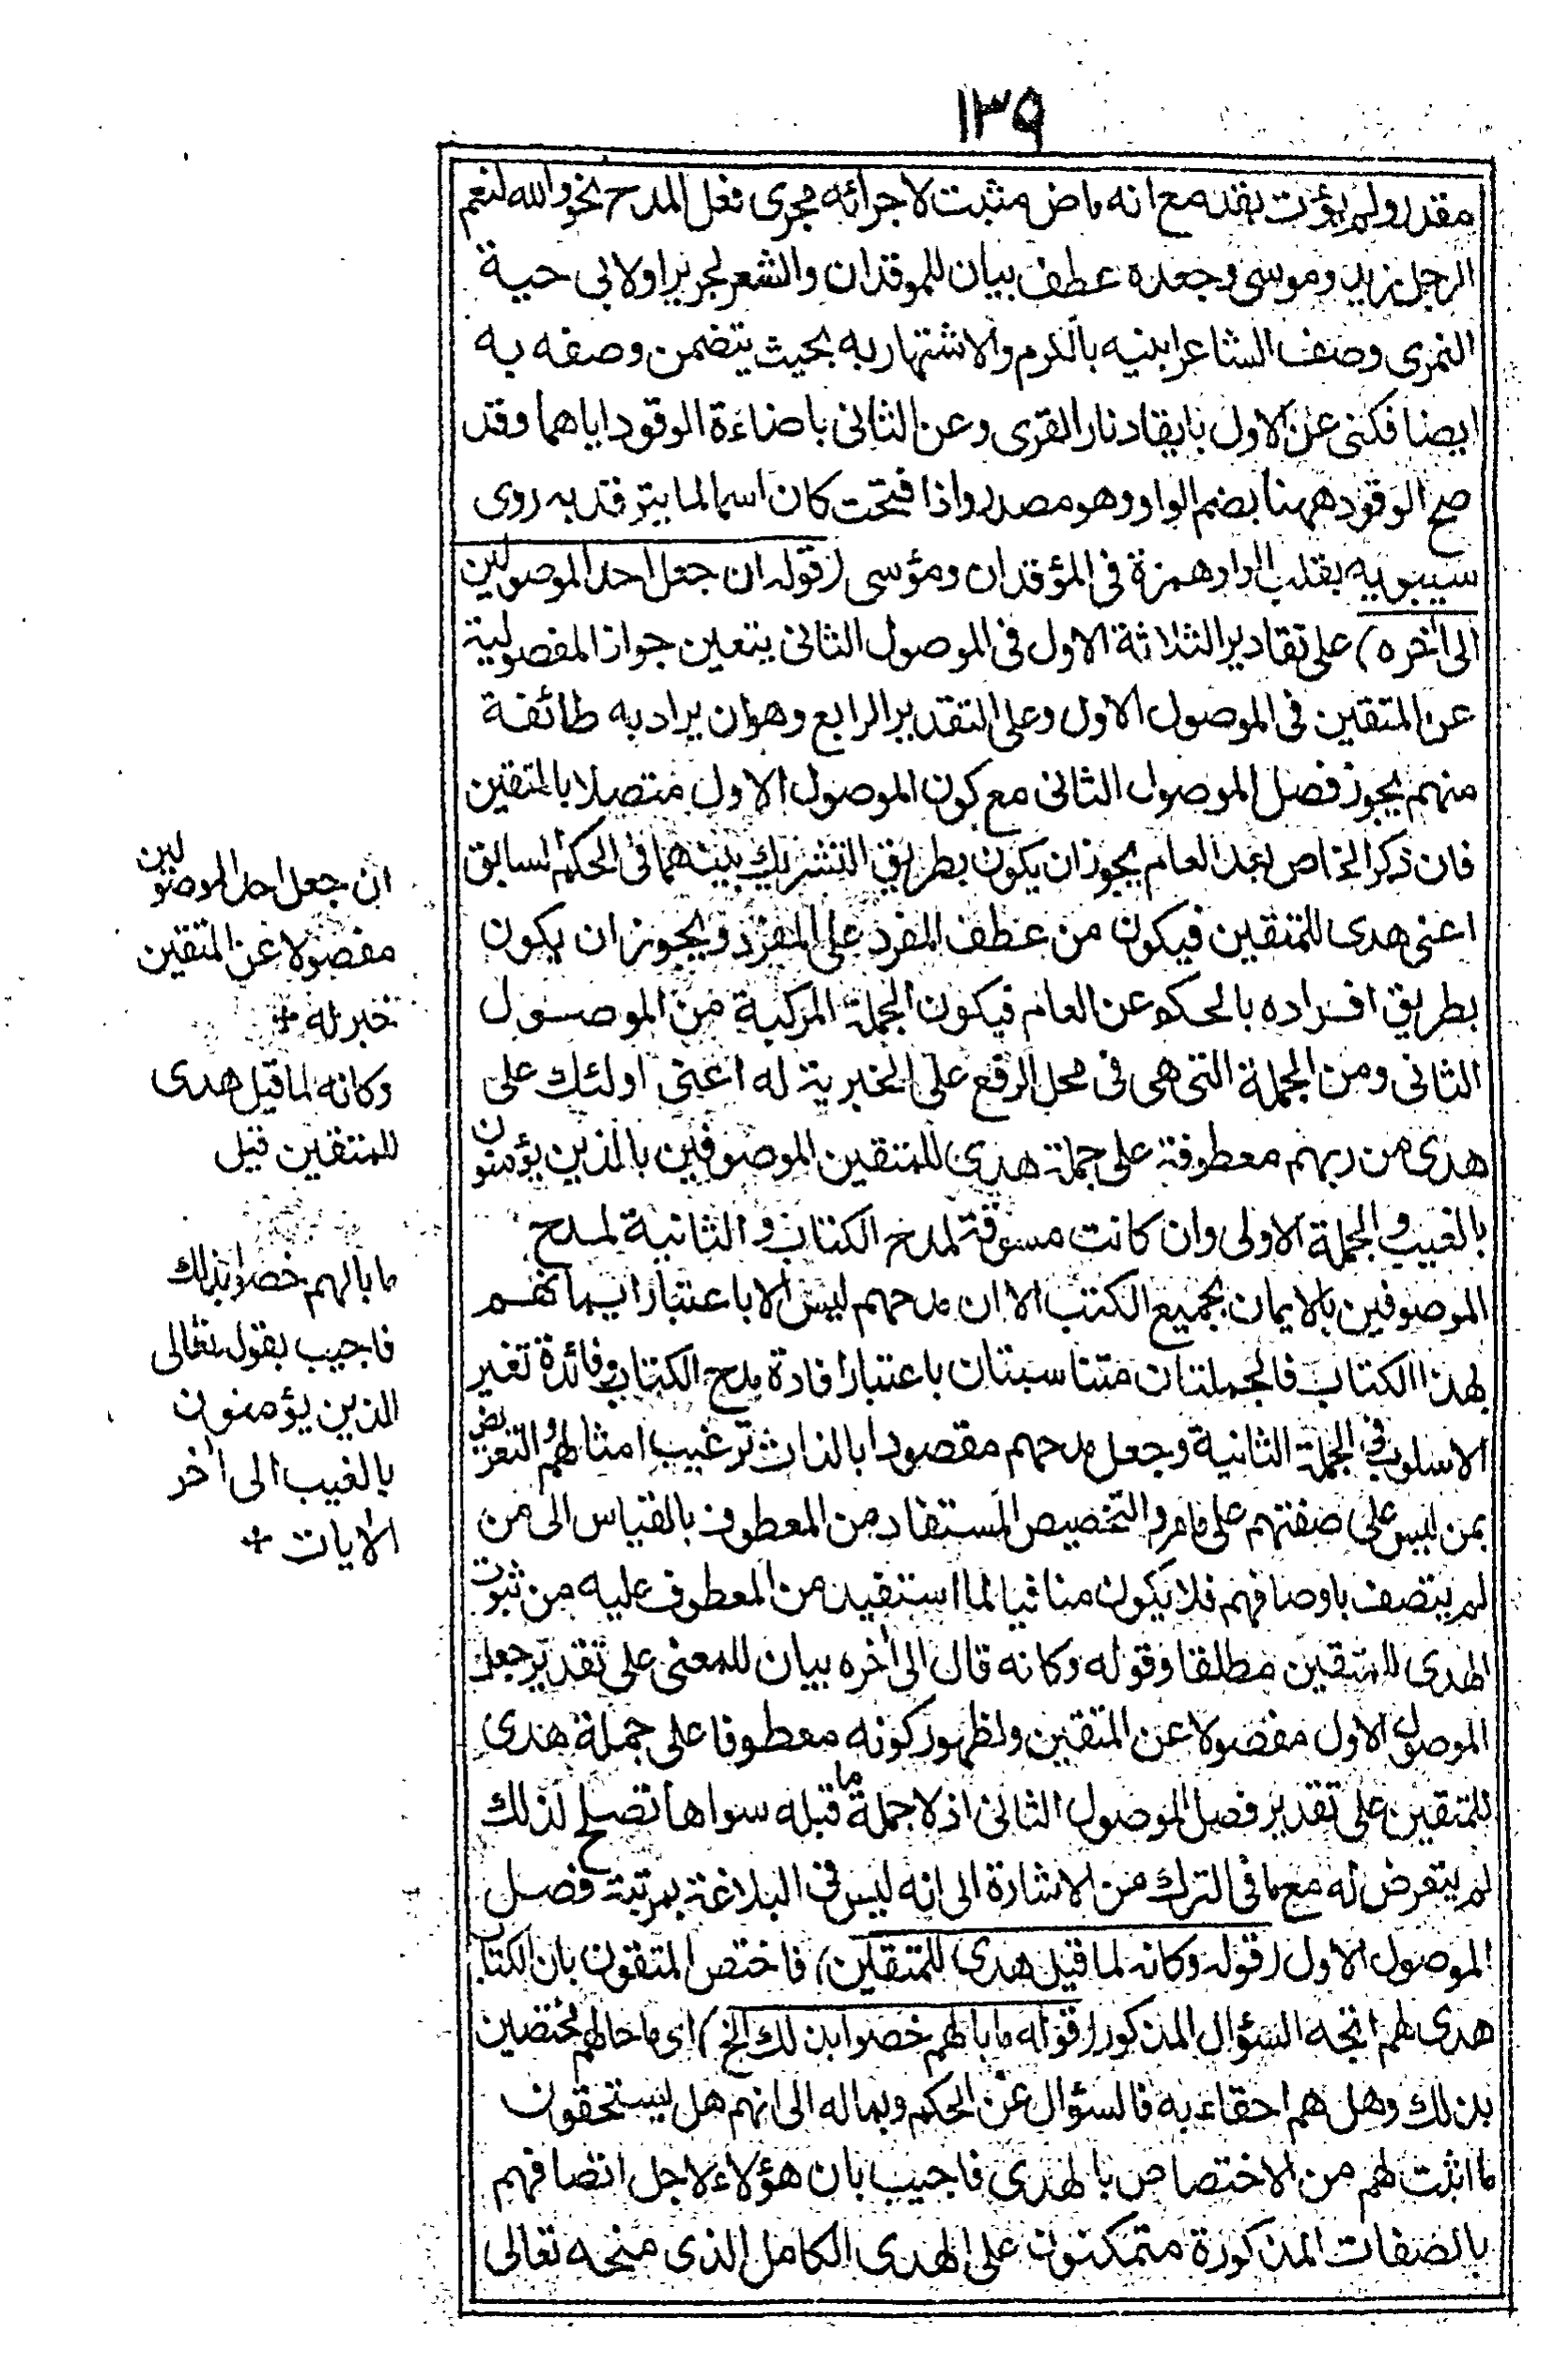 ١٣٩
مقدر ولم يؤت بقد مع انه ماض مثبت لاجرائه مجرى فعل المدح نحو والله لنعم
الرجل زيد وموسى وجعده عطف بيان للموقدان والشعر لجرير او لابى حية
النمرى وصف الشاعر ابنيه بالكرم والاشتهار به بحيث يتضمن وصفه به
ايضا فكنى عن الاول بايقاد نار القرى وعن الثانى باضاءة الوقود اياهما وقد
صح الوقود ههنا بضم الواو وهو مصدر واذا فتحت كان اسما لما يتوقد به روى
سيبويه بقلب الواو همزة فى المؤقدان ومؤسى (قوله ان جعل احد الموصولين
الى اخره) على تقادير الثلاثة الاول فى الموصول الثانى يتعين جواز المفصولية
عن المتقين فى الموصول الاول وعلى التقدير الرابع وهو ان يراد به طائفة
منهم يجوز فصل الموصول الثانى مع كون الموصول الاول متصلا بالمتقين
فان ذكر الخاص بعد العام يجوز ان يكون بطريق التشريك بينهما فى الحكم السابق
اعنى هدى للمتقين فيكون من عطف المفرد على المفرد ويجوز ان يكون
بطريق افراده بالحكم عن العام فيكون الجملة المركبة من الموصول
الثانى ومن الجملة التى هى فى محل الرفع على الخبرية له اعنى اولئك على
هدى من ربهم معطوفة على جملة هدى للمتقين الموصوفين بالذين يؤمنون
بالغيب والجملة الاولى وان كانت مسوقة لمدح الكتاب والثانية لمدح
الموصوفين بالايمان بجميع الكتب الا ان مدحهم ليس الا باعتبار ايمانهم
لهذا الكتاب فالجملتان متناسبتان باعتبار افادة مدح الكتاب وفائدة تغير
الاسلوب فى الجملة الثانية وجعل مدحهم مقصودا بالذات ترغيب امثالهم والتعريض
بمن ليس على صفتهم على مامر والتخصيص المستفاد من المعطوف بالقياس الى من
لم يتصف باوصافهم فلا يكون منافيا لما استفيد من المعطوف عليه من ثبوت
الهدى للمتقين مطلقا وقوله وكانه قال الى اخره بيان للمعنى على تقدير جعل
الموصول الاول مفصولا عن المتقين ولظهور كونه معطوفا على جملة هدى
للمتقين على تقدير فصل الموصول الثانى اذ لا جملة ما قبله سواها تصلح لذلك
لم يتعرض له مع ما فى الترك من الاشارة الى انه ليس فى البلاغة بمرتبة فصل
الموصول الاول (قوله وكانه لما قيل هدى للمتقين) فاختص المتقون بان الكتاب
هدى لهم اتجه السؤال المذكور (قوله ما بالهم خصوا بذلك الخ) اى ما حالهم مختصين
بذلك وهل هم احقاء به فالسؤال عن الحكم وبماله الى انهم هل يستحقون
ما اثبت لهم من الاختصاص بالهدى فاجيب بان هؤلاء لاجل اتصافهم
بالصفات المذكورة متمكنون على الهدى الكامل الذى منحه تعالى
ان جعل احد الموصولين
مفصولا عن المتقين
خبر له +
وكانه لما قيل هدى
للمتقين قيل
ما بالهم خصوا بذلك
فاجيب بقوله تعالى
الذين يؤمنون
بالغيب الى اخر
الايات +